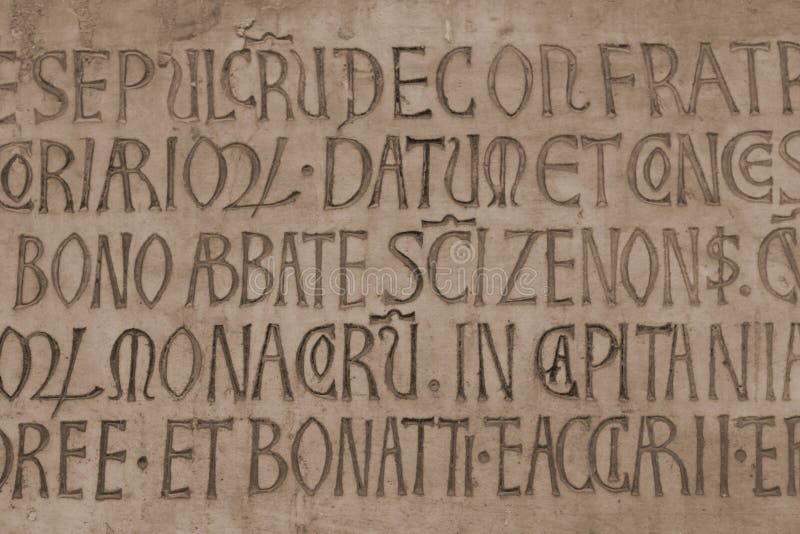 E SEPULCRU DE CON FRATR
CORIARIOꝜ · DATUM ET CONCES
BONO ABBATE SCI ZENONS · C
OꝜ MONACORU · IN CAPITANIA
OREE · ET BONATTI · E ACCARII · E
dreamstime